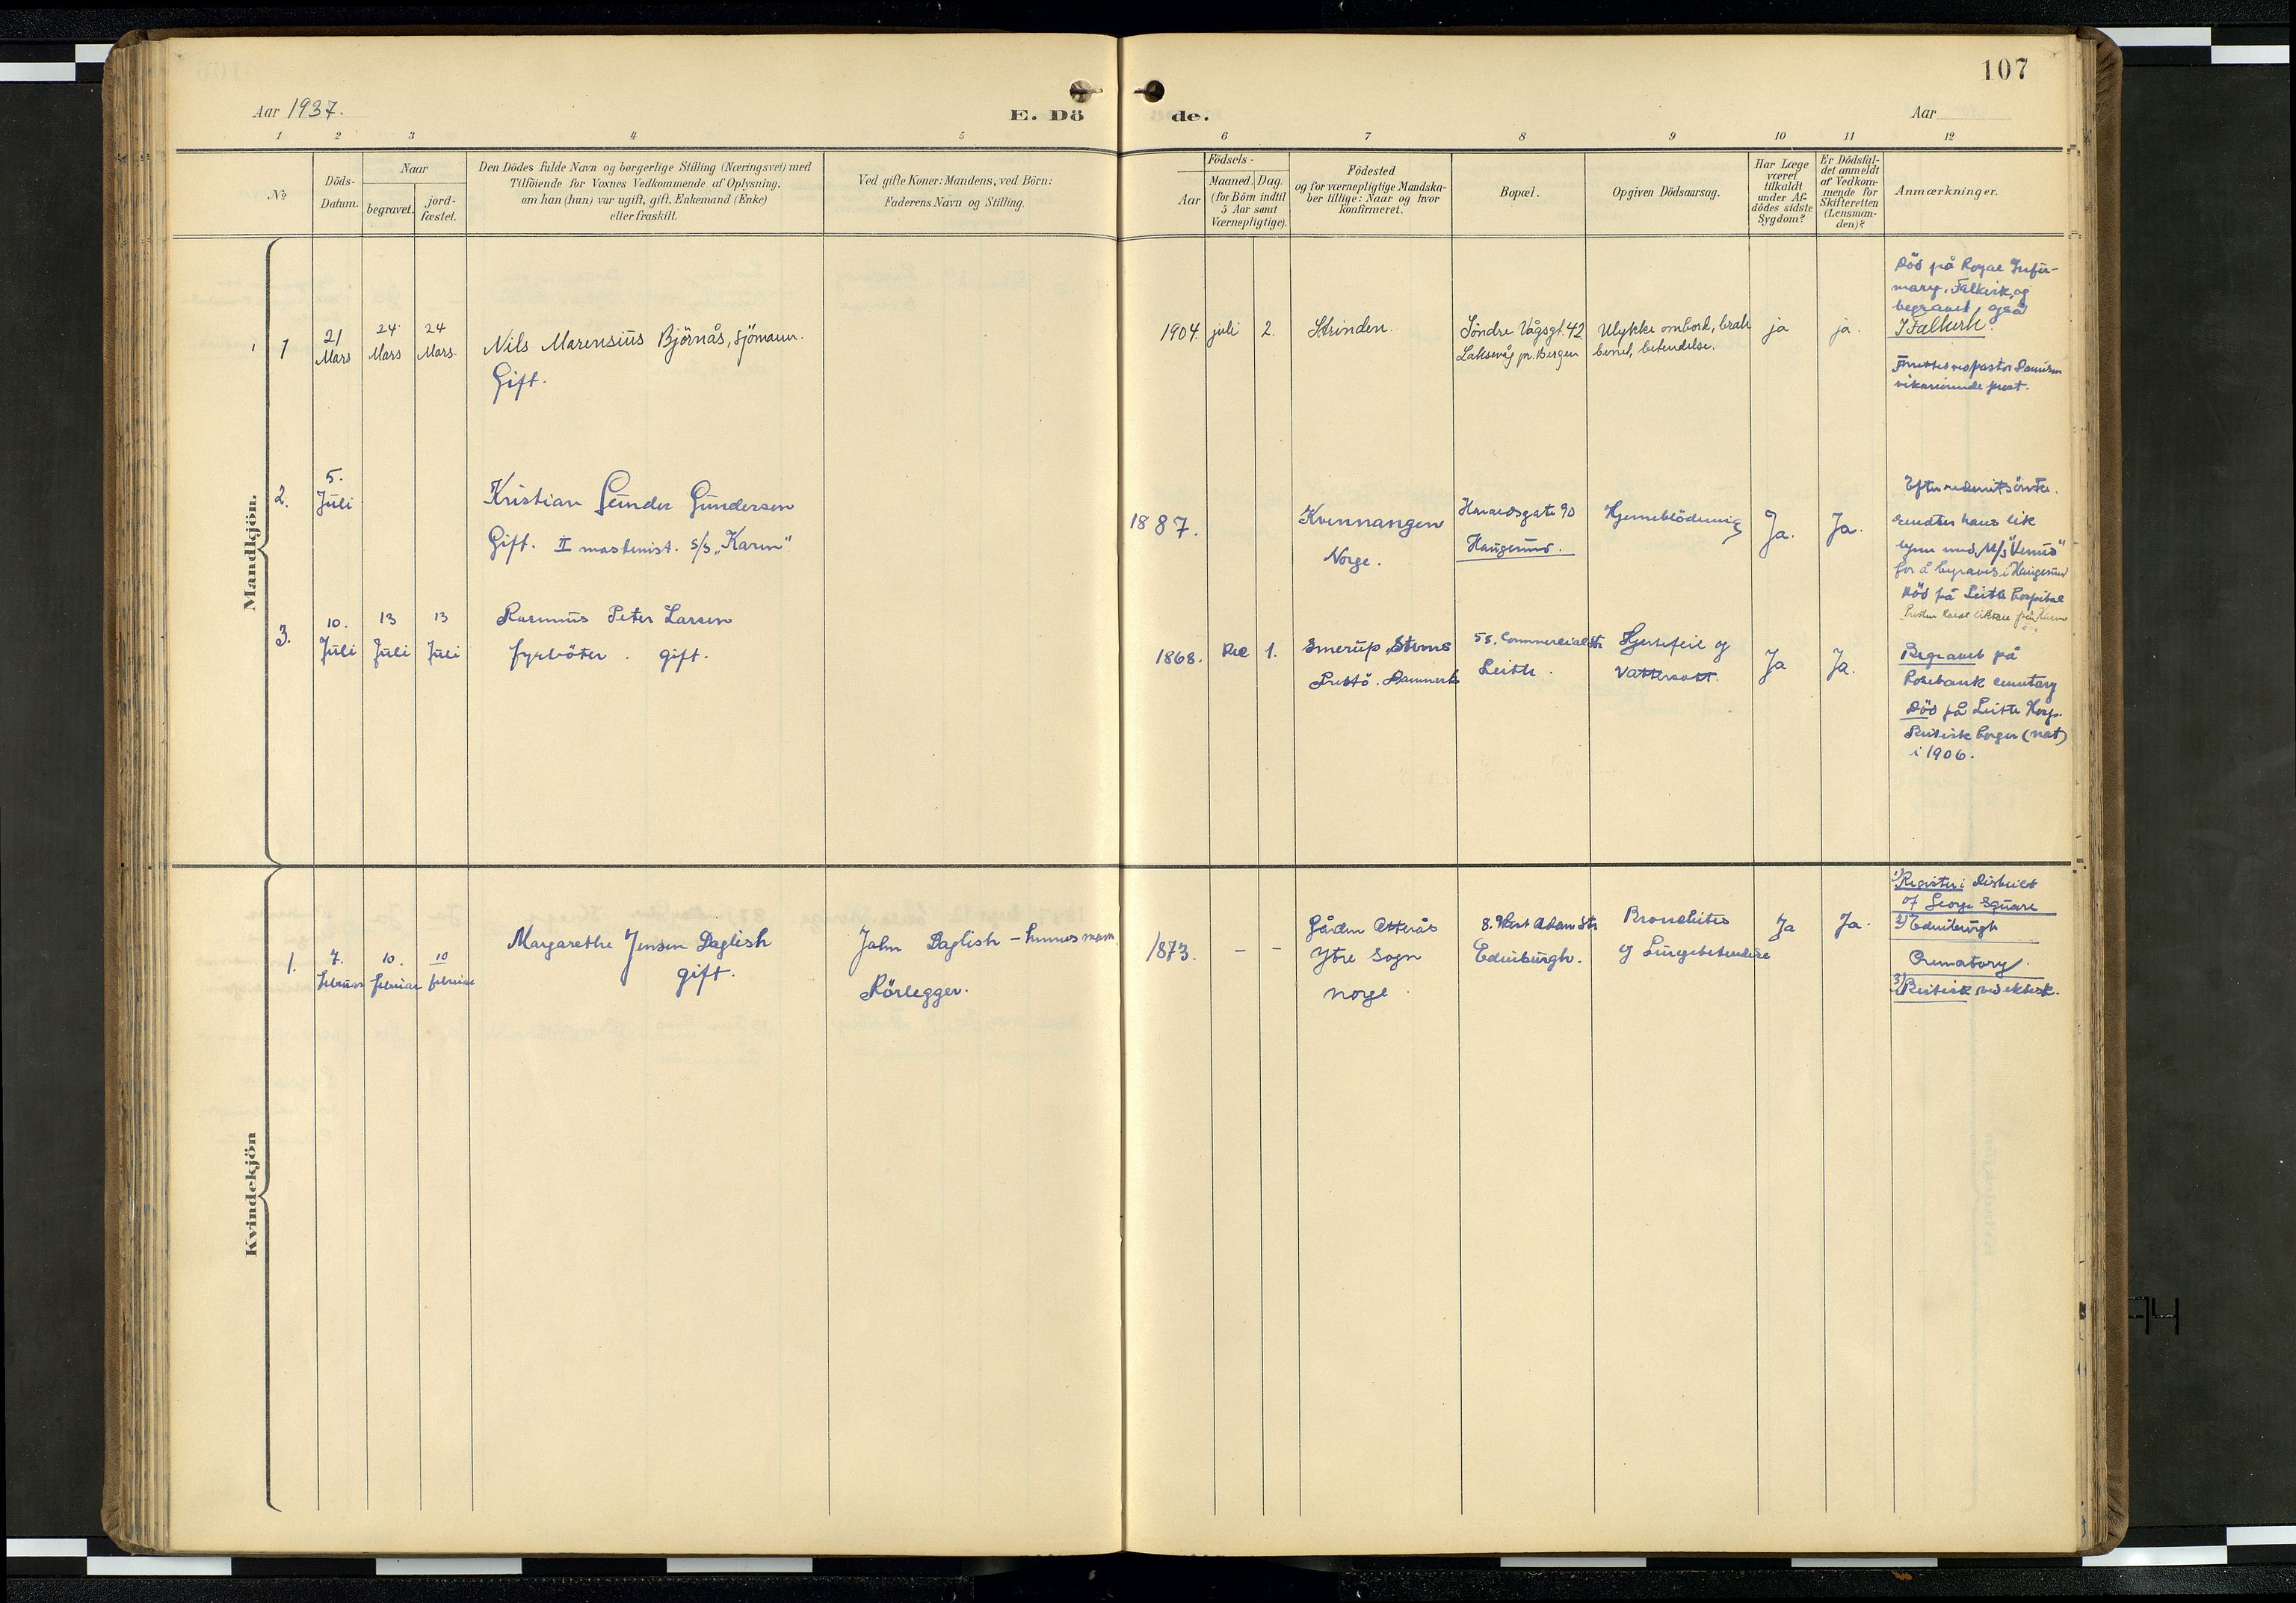 107
Aar 1937.
E. Dö
de.
Aar
1 2 3 4 5 6 7 8 9 10 11 12
No
Döds-
Datum.
Naar
begravet.
jord-
fæstet.
Den Dödes fulde Navn og borgerlige Stilling (Næringsvei) med
Tilföiende for Voxnes Vedkommende af Oplysning,
om han (hun) var ugift, gift, Enkemand (Enke)
eller fraskilt.
Ved gifte Koner: Mandens, ved Börn:
Faderens Navn og Stilling.
Födsels-
Aar
Maaned. Dag.
(for Börn indtil
5 Aar samt
Værnepligtige).
Födested
og for værnepligtige Mandska-
ber tillige: Naar og hvor
Konfirmeret.
Bopæl.
Opgiven Dödsaarsag.
Har Læge
været
tilkaldt
under Af-
dödes sidste
Sygdom?
Er Dödsfal-
det anmeldt
af Vedkom-
mende for
Skifteretten
(Lensman-
den)?
Anmærkninger.
Mandkjön.
1
21
Mars
24
Mars
24
Mars.
Nils Marensius Björnås, Sjömann.
Gift.
1904. juli 2.
Strinden.
Söndre Vågsgt. 42
Laksevåg pr. Bergen
Ulykke ombord, brakk
benet, betendelse.
ja
ja.
Död på Royal Infir-
mary, Falkirk, og
begravet også
i Falkirk.
Forrettes ved pastor
vikarierende prest.
2.
5.
Juli
Kristian Gunder Gundersen
Gift. II maskinist. s/s „Karen"
1887.
Kvennangen
Norge.
Haraldsgate 90
Haugesund.
Hjerneblödning
Ja.
Ja.
sendtes hans lik
hjem med M/s "Venus"
for å begraves i Haugesund
Död på Leith Hospital
3.
10.
Juli
13
Juli
13
Juli
Rasmus Peter Larsen
fyrböter. gift.
1868. Dec 1.
Smerup, Stevns
Prestö. Danmark
58. Commercial Str
Leith.
Hjertefeil og
Vattersott.
Ja
Ja.
Begravet på
Rosebank cemetary
Död på Leith Hosp.
Britisk borger (nat)
i 1906.
Kvindekjön
1.
7.
februar
10.
februar
10
februar
Margarethe Jensen Daglish
gift.
John Daglish –
Rörlegger.
1873. – –
Gården
Ytre Sogn
Norge
8. West Adam Str
Edinburgh.
Bronchites
og Lungebetendelse
Ja
Ja.
1) Register i District
of George Square
2) Edinburgh
Crematory.
3) Britisk ved ektesk.